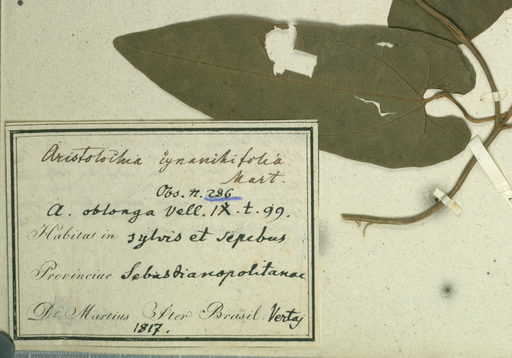 Aristolochia cynanchifolia
Mart.
Obs. n. 286
A. oblonga Vell. IX. t. 99.
Habitat in sylvis et sepibus
Provinciae Sebastianopolitanae
Dr. Martius Iter Brasil.
1817.